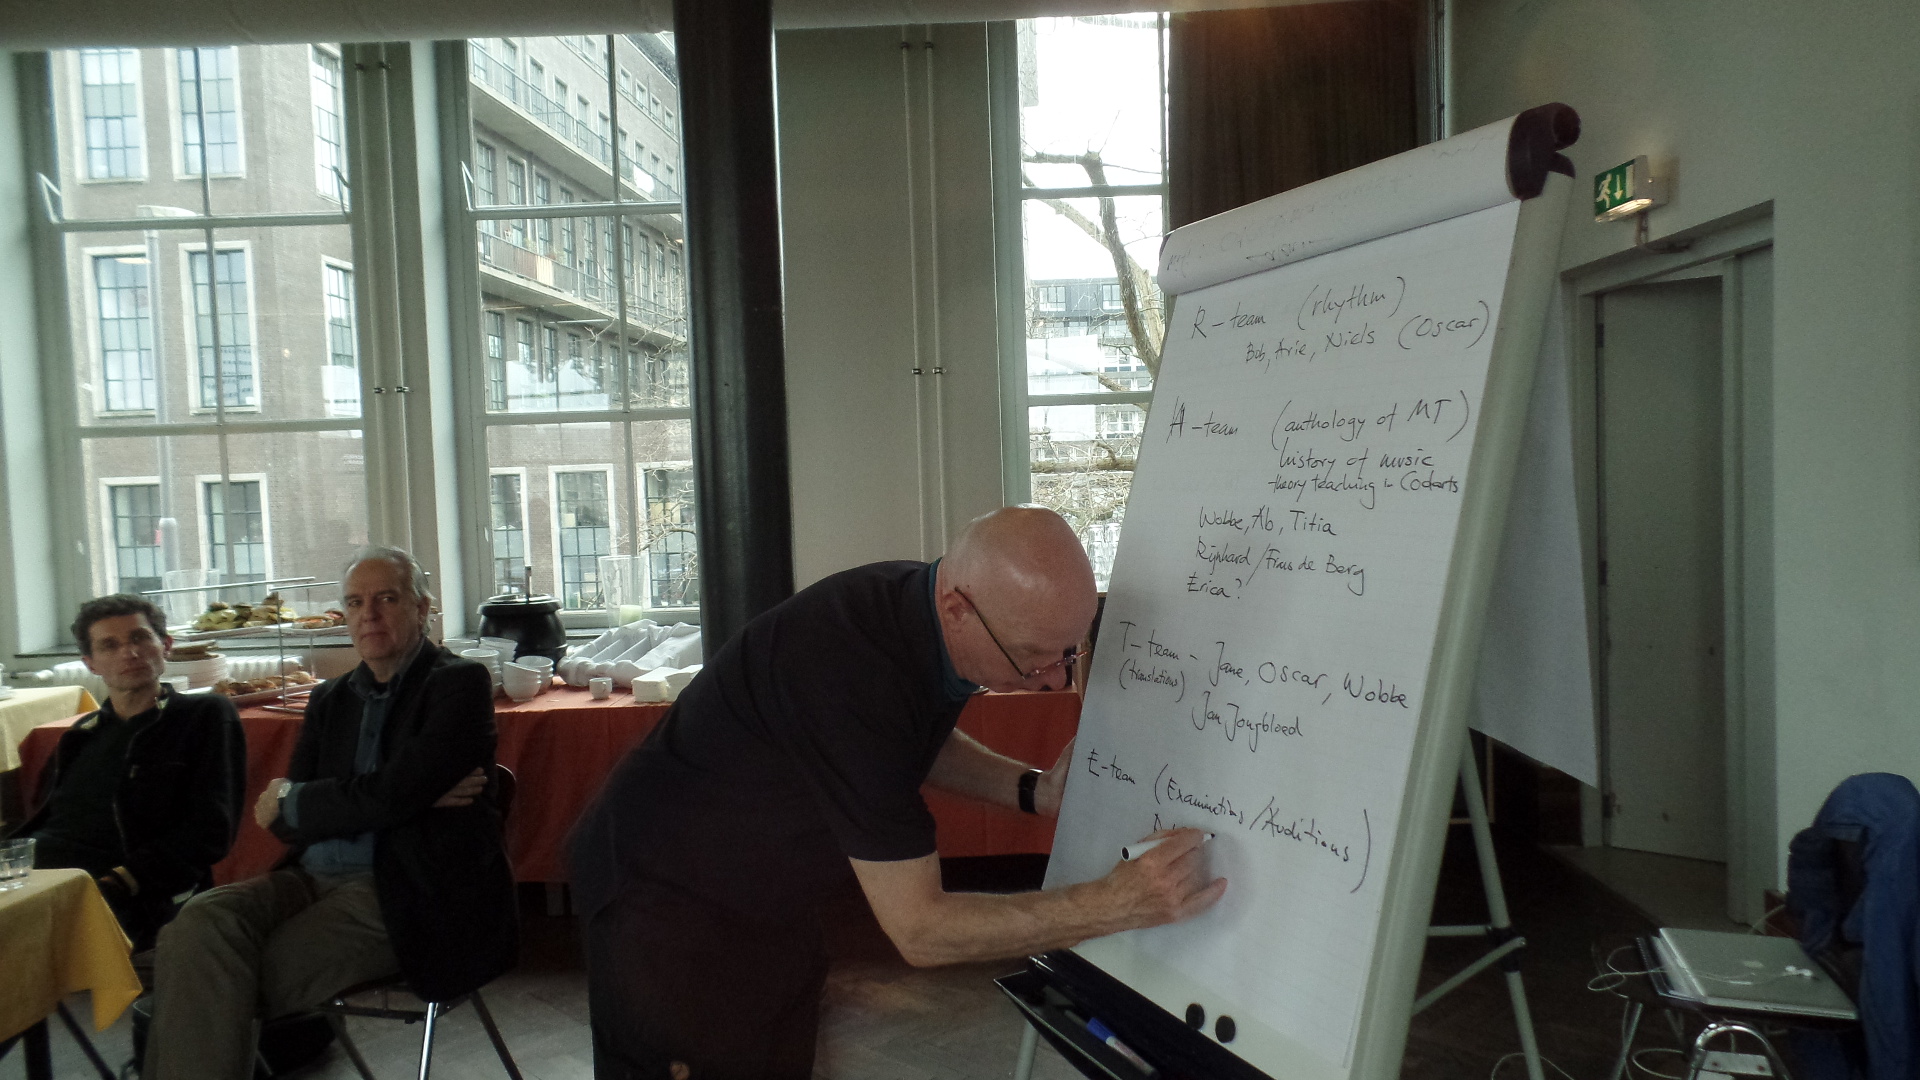 R-team (rhythm)
Bob, Arie, Niels (Oscar)
A-team (anthology of MT)
history of music
theory teaching in Codarts
Wobbe, Ab, Titia
Rijnhard / Frans de Berg
Erica?
T-team - Jane, Oscar, Wobbe
(translations)
Jan Jongbloed
E-team (Examinations/Auditions)